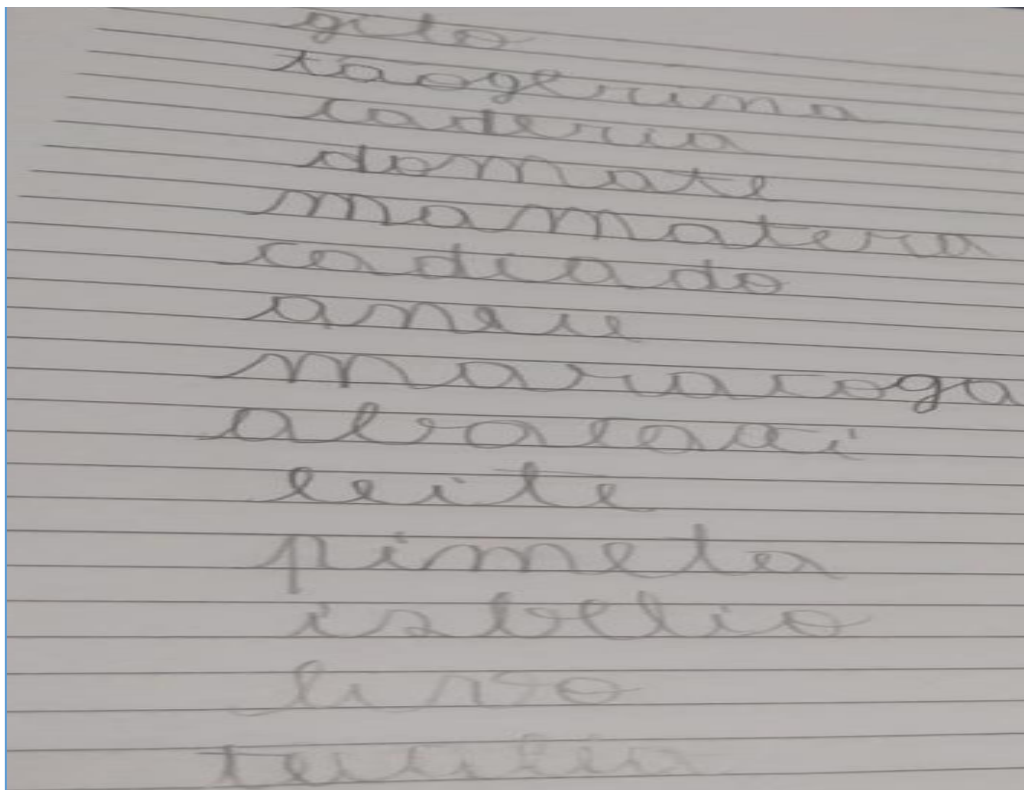 gito
taogerina
caderia
domate
mamatera
cadeado
aneie
maracoga
abalescai
leite
pimeta
isbelio
livo